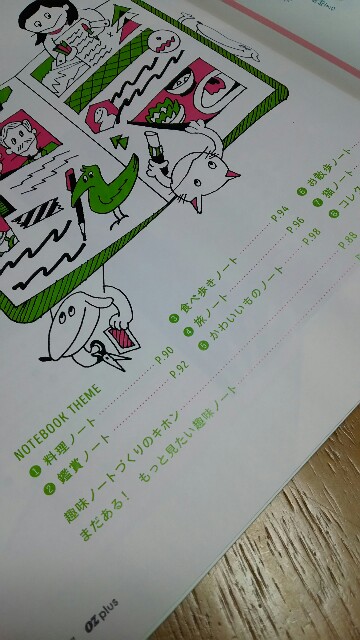 NOTEBOOK THEME
❶ 料理ノート P.90
❷ 鑑賞ノート P.92
❸ 食べ歩きノート P.94
❹ 旅ノート P.96
❺ かわいいものノート P.98
❻ お散歩ノート
❼ 涙ノート
❽ コレ
趣味ノートづくりのキホン P.88
まだある! もっと見たい趣味ノート
OZ plus